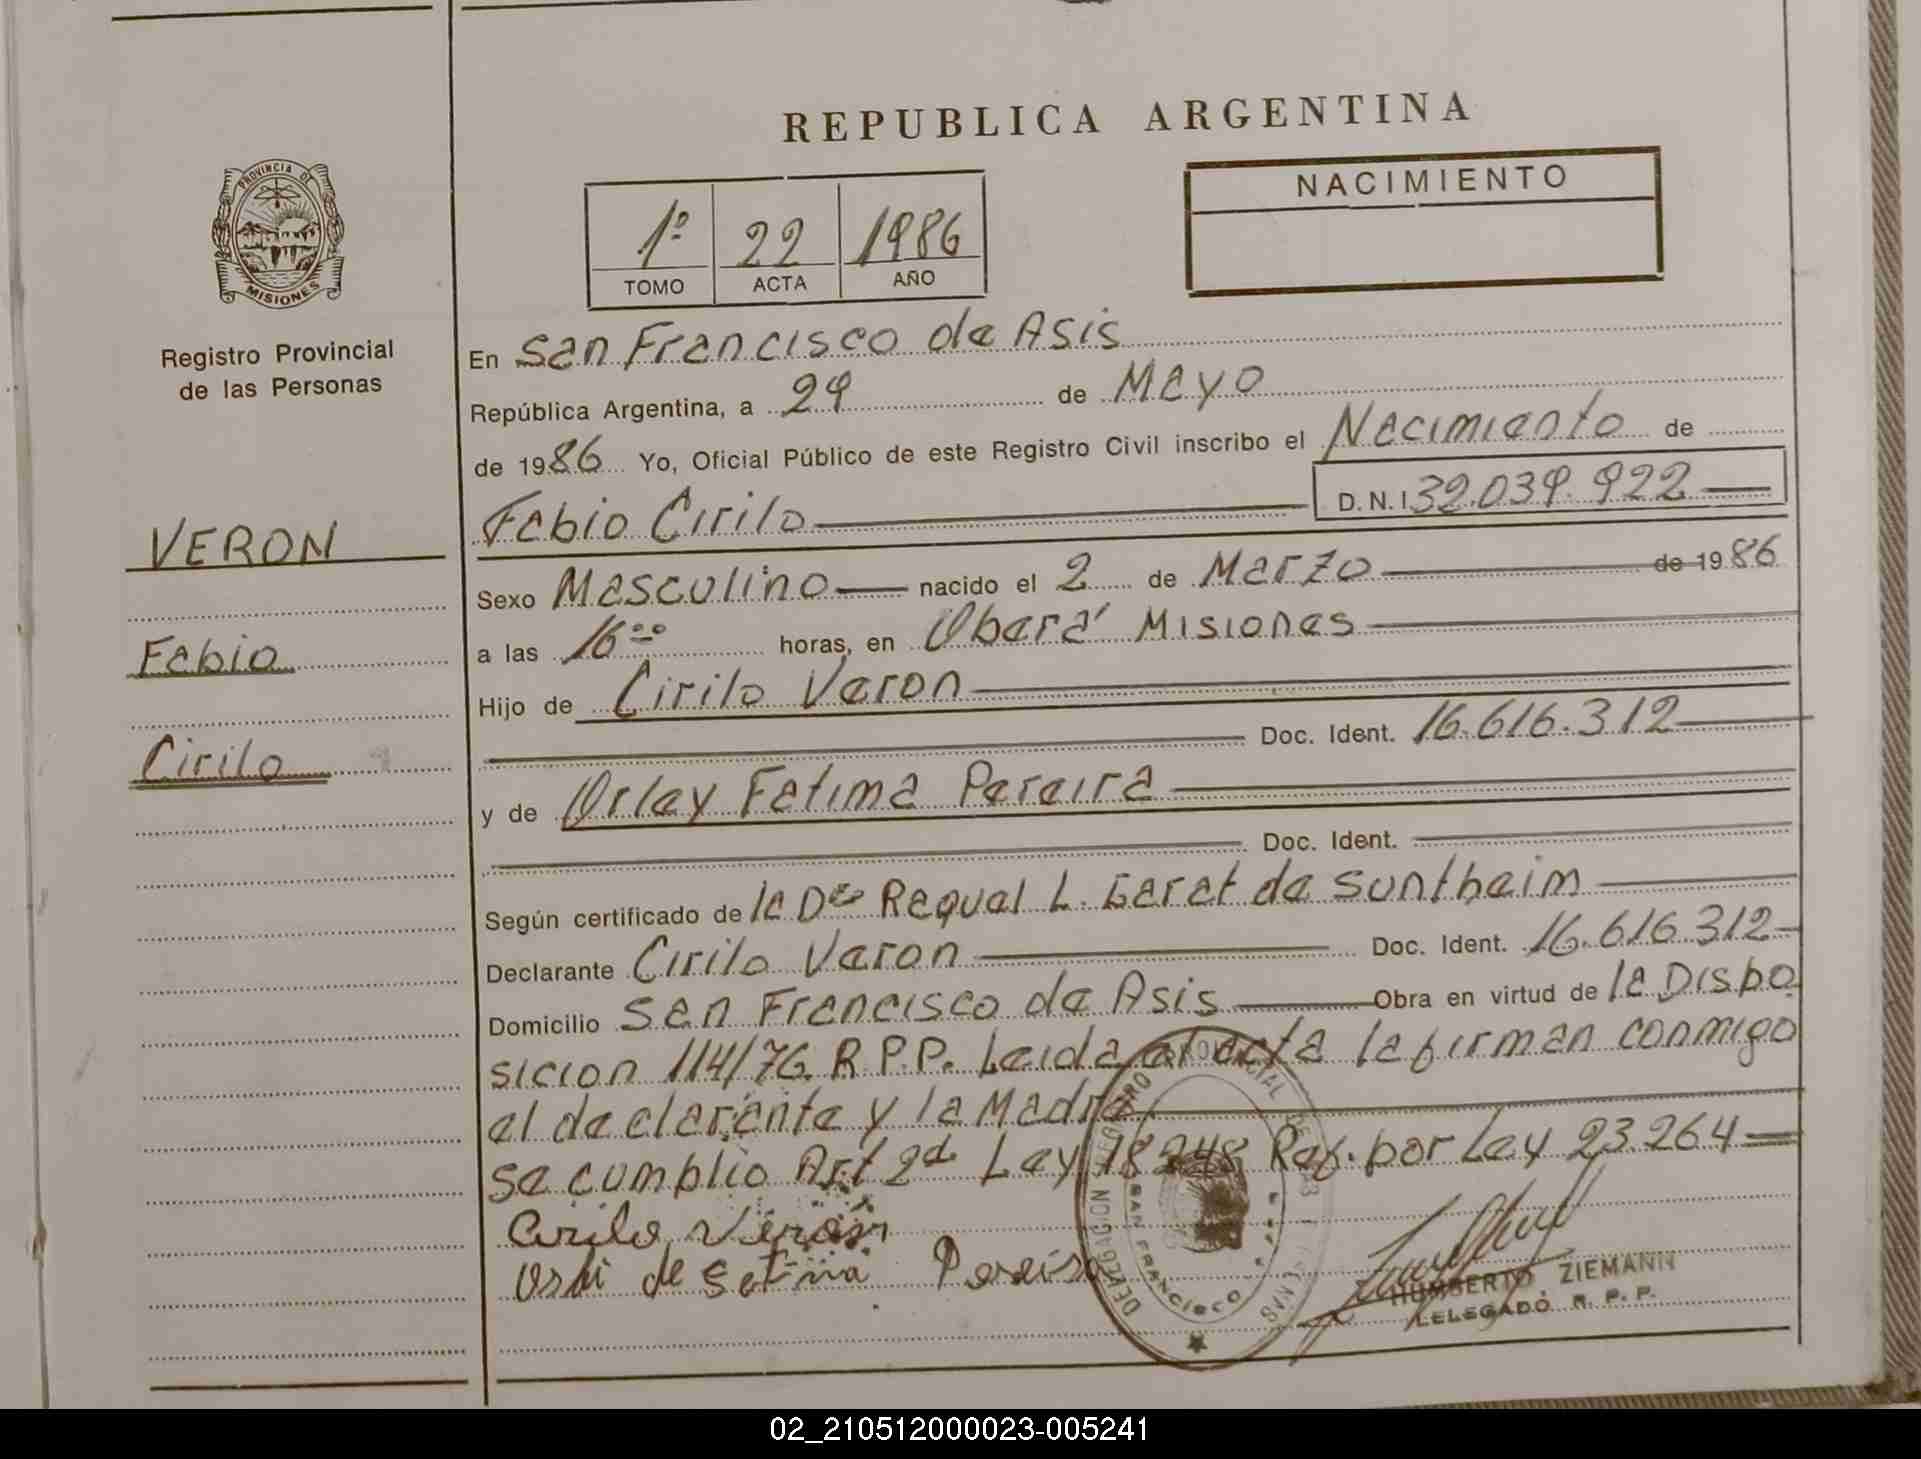 REPUBLICA ARGENTINA
PROVINCIA DE
MISIONES
Registro Provincial
de las Personas
VERON
Fabio
Cirilo
1º 22 1986
TOMO ACTA AÑO
NACIMIENTO
En San Francisco de Asis
República Argentina, a 29 de Mayo
de 1986 Yo, Oficial Público de este Registro Civil inscribo el Nacimiento de
Fabio Cirilo D.N.I 32.039.922
Sexo Masculino nacido el 2 de Marzo de 1986
a las 16⁰⁰ horas, en Oberá Misiones
Hijo de Cirilo Veron
Doc. Ident. 16.616.312
y de Orley Fatima Pereira
Doc. Ident.
Según certificado de la Dra Raquel L. Garat de Suntheim
Declarante Cirilo Veron Doc. Ident. 16.616.312
Domicilio San Francisco de Asis Obra en virtud de la Dispo
sicion 114/76 R.P.P. Leida el acta la firman conmigo
el declarante y la Madre
se cumplio Art 2d Ley 18248 Ref. por Ley 23.264
Cirilo Veron
de Pereira
DELEGACION
SAN FRANCISCO
HUMBERTO ZIEMANN
DELEGADO R. P. P.
02_210512000023-005241